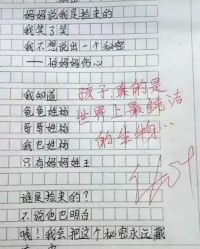 妈妈说我是捡来的
我笑了笑
我不想说出一个秘密
——怕妈妈伤心
我知道
爸爸姓杨
哥哥姓杨
我也姓杨
只有妈妈姓王
孩子真的是
世界上最纯洁
的生物…
谁是捡来的?
不说也明白
嘘!我会把这个秘密永远藏